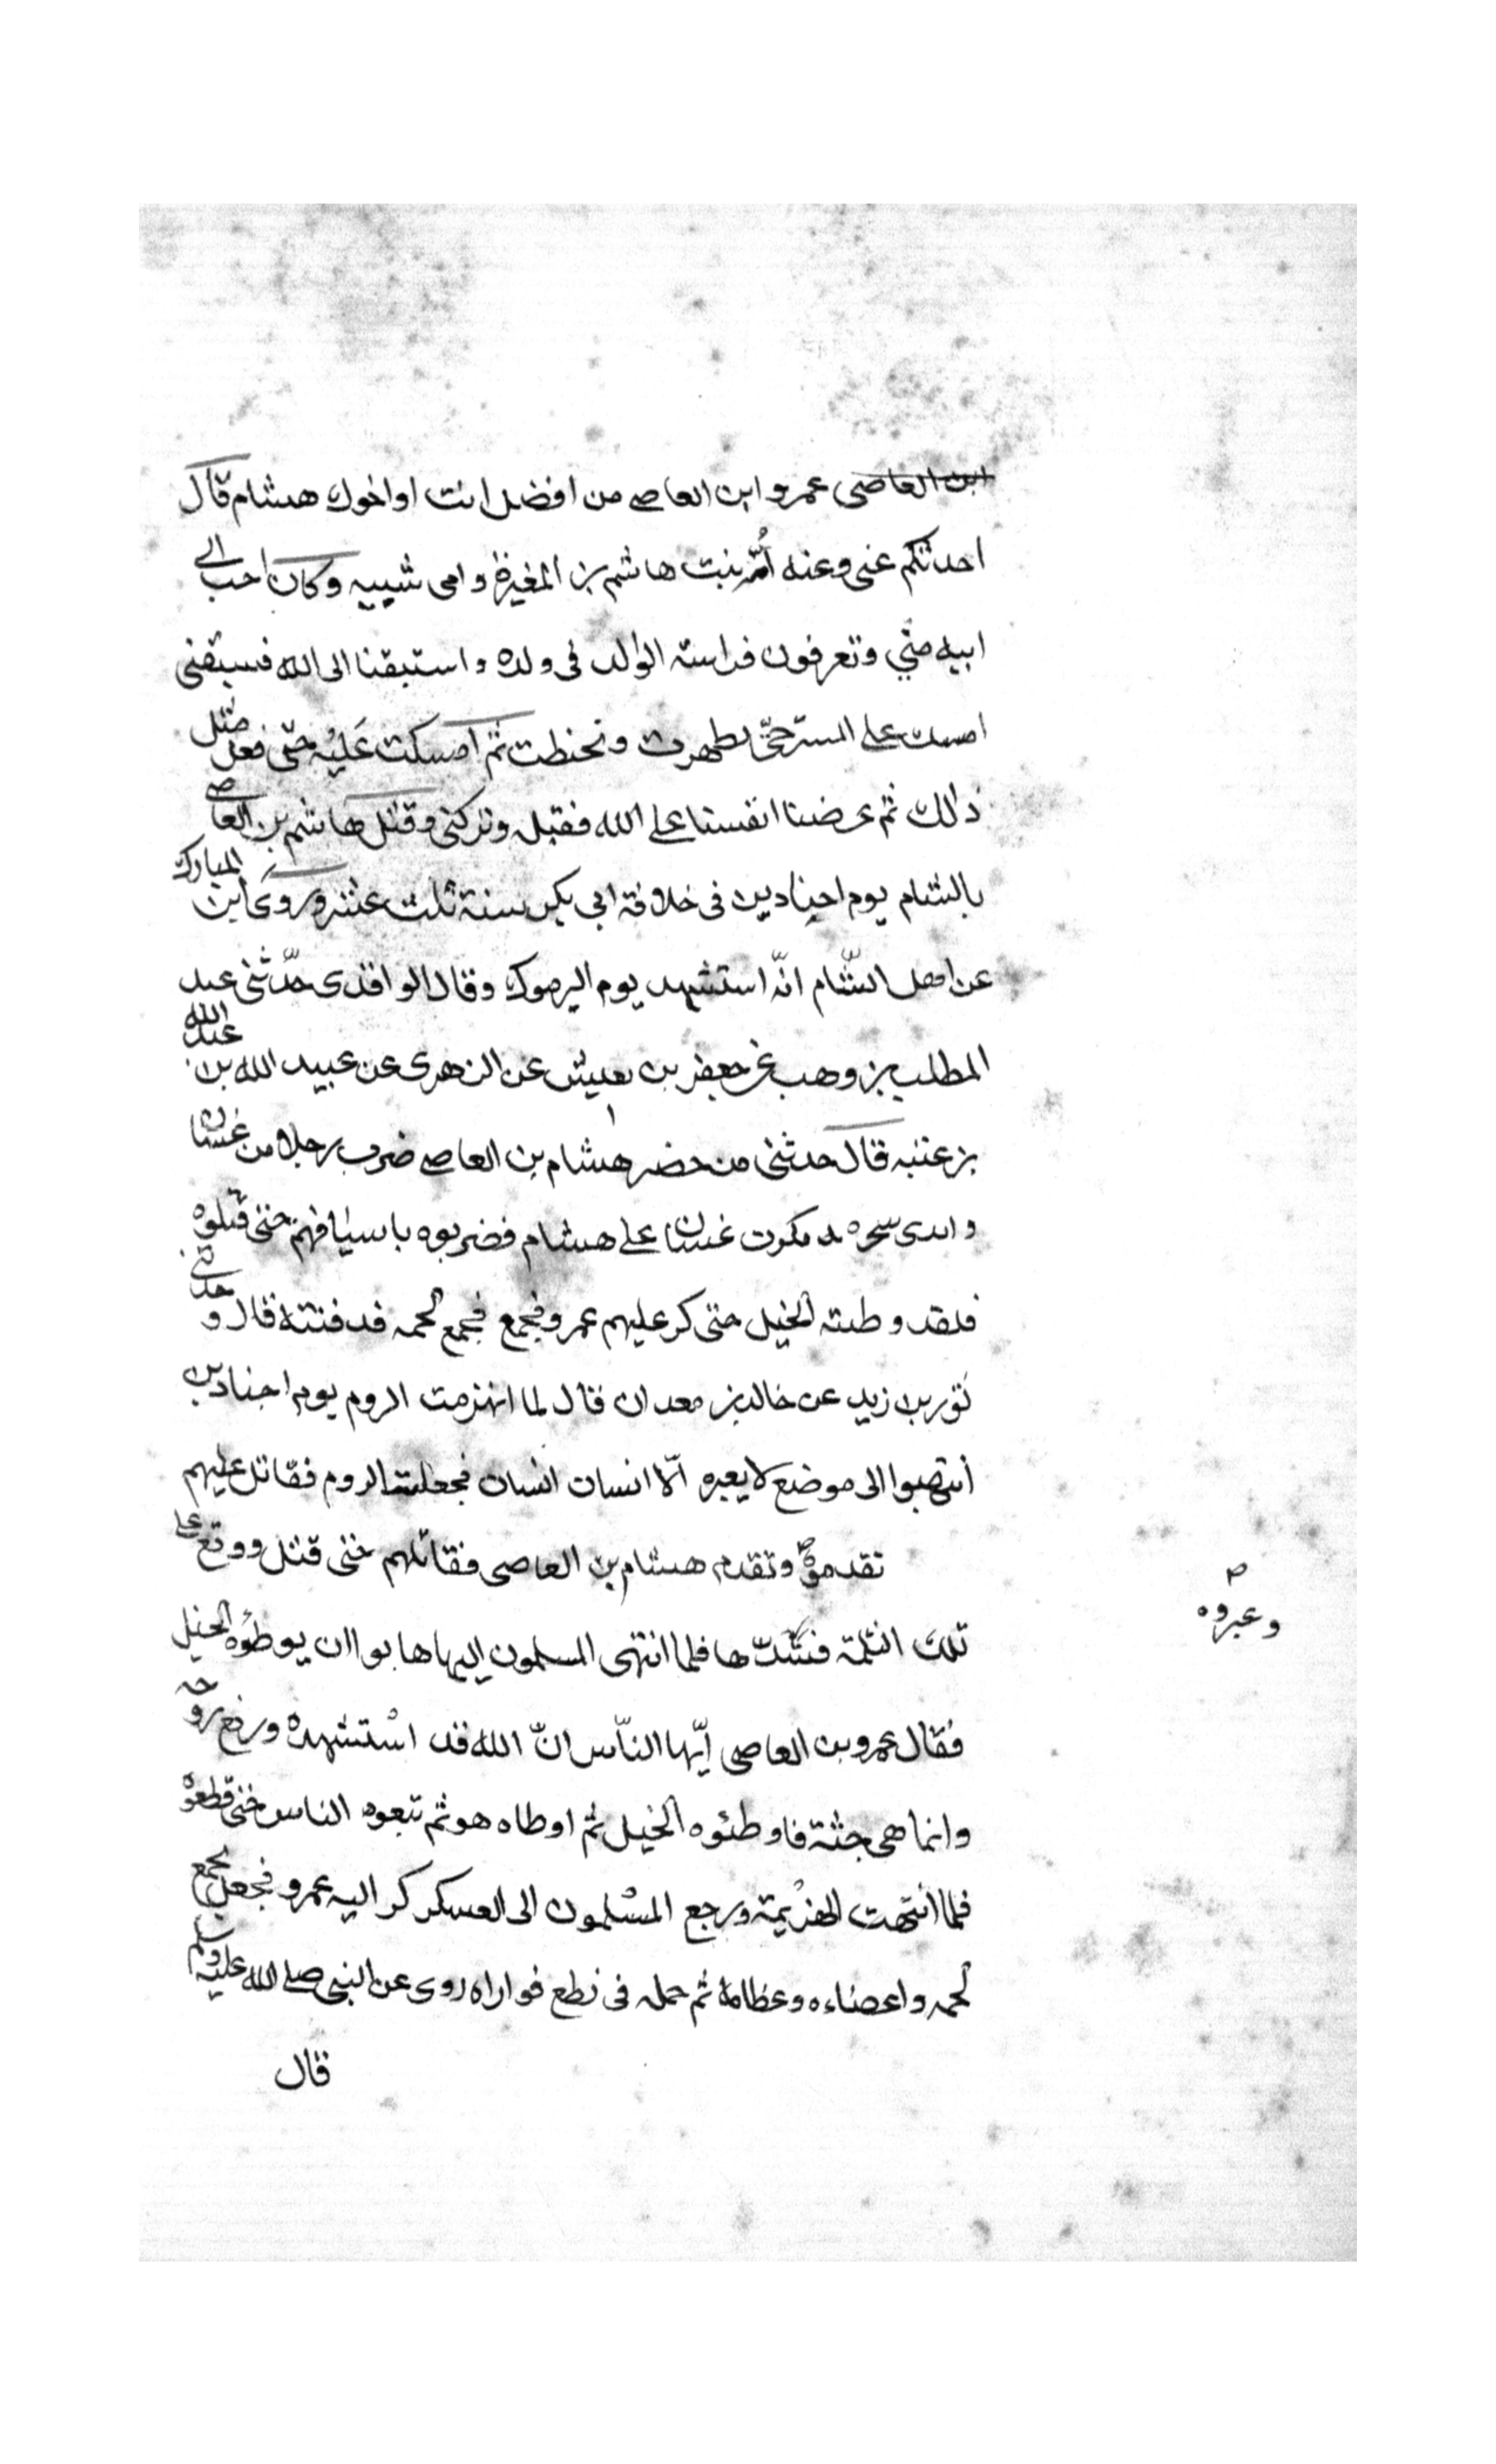 ابن العاصى عمرو ابن العاصى من افضل انت او اخوك هشام قال
احدثكم عنى وعنه أُمّه بنت هاشم بن المغيرة وامى شيبيه وكان احب الى
ابيه منّي وتعرفون فراسته الوالد فى ولده واستبقنا الى الله فسبقنى
امسك على الستر حتّى تطهرت وتحنطت ثمّ امسكت عَليْه حتّى فعل مثل
ذلك ثم عرضنا انفسنا على الله فقبله وتركنى وقتل هاشم بن العاصى
بالشام يوم اجنادين فى خلافة ابى بكر سنة ثلث عشر وروى ابن المبارك
عن اهل الشّام انّه استشهد يوم اليرموك وقال الواقدى حدّثنى عبد
المطلب بن وهب عن جعفر بن يعيش عن الزهرى عن عبيد الله بن عبد الله
بن عتبه قال حدثنى من حضر هشام بن العاصى ضرب رجلا من غسان
وابدى سحره فكرت غسان على هشام فضربوه باسيافهم حتى قتلوه
فلقد وطئته الخيل حتى كر عليهم عمرو فجمع فجمع لحمه فدفنته قال وحدثنى
ثور بن زيد عن خالد بن معدان قال لما انهزمت الروم يوم اجنادين
أنتهبوا الى موضع لا يعبره الّا انسان انسان فجعلت الروم فقاتل عليهم
تقدموه وتقدم هشام بن العاصى فقاتلهم حتى قتل ووقع على
وعبروه
تلك الثلمة فسّدّها فلما انتهى المسلمون اليها هابوا ان يوطئوه الخيل
فقال عمرو بن العاصى ايّها النّاس انّ الله قد اسْتشهده ورفع روحه
وانما هى جثة فاوطئوه الخيل ثم اوطاه هو ثم تبعوه الناس حتى قطعوه
فلما انتهت الهزيمة ورجع المسْلمون الى العسكر كر اليه عمرو فجعل يجمع
لحمه واعضاءه وعظامه ثم حمله فى نطع فواراه روى عن النبى صلى الله عليه وسلم
قال